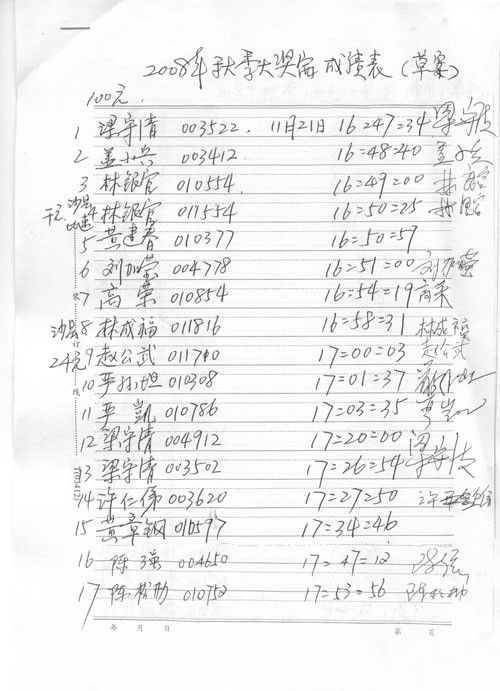 2008年秋季大奖赛成绩表（草案）
100元.
1 梁守清 003522. 11月21日 16=47=34
2 孟小兵 003412 16=48=40
3 林银官 010554. 16=49=00
沙县 4 林银官 011554 16=50=25
5 黄建春 010377 16=50=59
6 刘加莹 004778 16=51=00
7 高荣 010854 16=54=19 高荣
沙县 8 林成福 011816 16=58=31 林成福
24元 9 赵公武 011710 17=00=03 赵公武
10 严孙坦 010308 17=01=37
11 严凯 010786 17=03=35
12 梁守清 004912 17=20=00
13 梁守清 003502 17=26=54
14 许仁俤 003620 17=27=50
15 黄章钢 010597 17=34=46
16 陈强 004650 17=47=12
17 陈松 010752 17=53=56
年 月 日 第 页